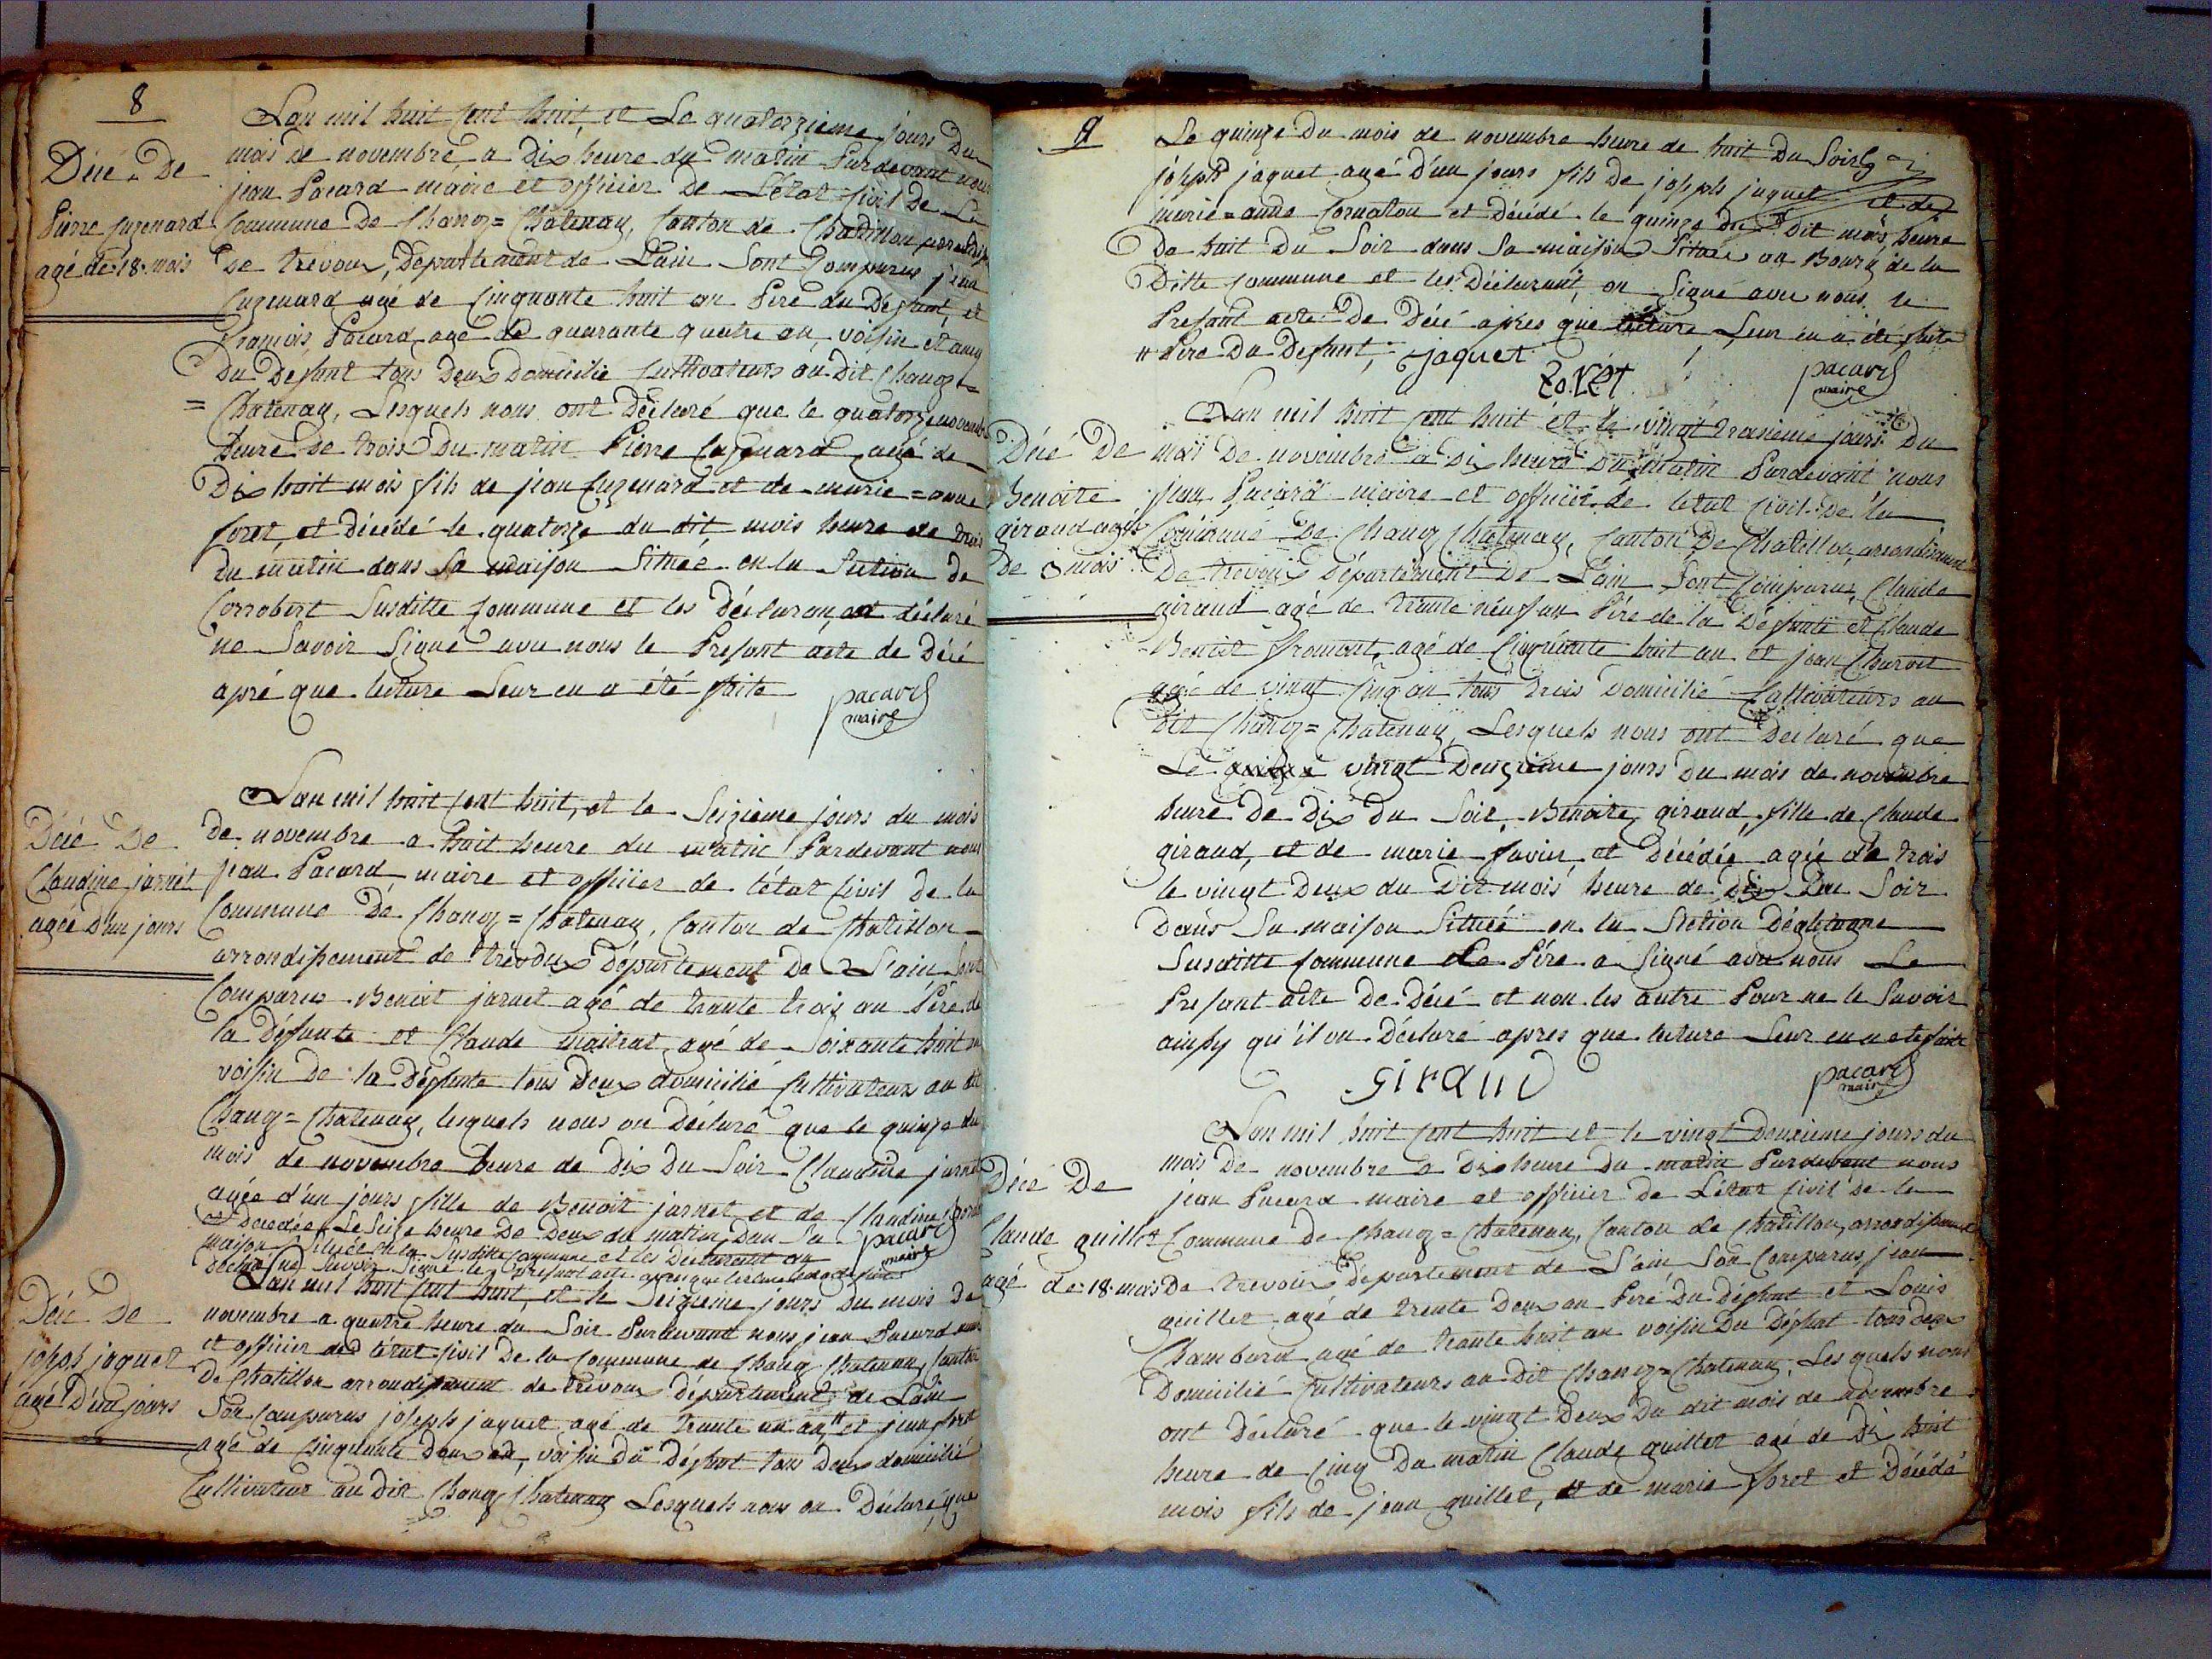 8
Décé De
Pierre Cuzenard
agé de 18 mois
Lan mil huit cent huit, et Le quatorzieme jours Du
mois de novembre a Dix heure du matin Pardevant nous
jean Pacard maire et officier De L'état Civil de La
Commune De Chanoz=Chatenay, Canton de Chatillon
De trevoux, Departement de Lain Sont Comparus jean
Cuzenard agé de Cinquante huit an Pere du Defunt, et
francois Pacard agé de quarante quatre an, voisin et amy
Du Defunt tous Deux Domicilié Cultivateurs au Dit Chanoz=
=Chatenay, Lesquels nous ont Déclaré que le quatorze novembre
heure De trois Du matin Pierre Cuzenard agé de
Dix huit mois fils de jean Cuzenard et de marie=anne
foret, et Décédé le quatorze du dit mois heure de trois
du matin dans Sa maison Située en la Section De
Corrobert Susditte Commune et les Déclaron, ont déclaré
ne Savoir Signé avec nous le Presant acte de Décé
apré que lecture Leur en a été faite
pacard
maire
Décé De
Claudine jarnet
agée D'un jours
Lan mil huit cent huit, et le Seizieme jours du mois
de novembre a huit heure du matin Pardevant nous
jean Pacard, maire et officier de l'état Civil de la
Commune De Chanoz=Chatenay, Canton de Chatillon
arrondissement de trévoux Département De Lain Sont
Comparus Benoit jarnet agé de trante trois an Pére de
la Défunte et Claude maitrat, agé de Soixante huit an
voisin De la Défunte tous Deux domicilié Cultivateur au dit
Chanoz=Chatenay, lesquels nous on Déclaré que le quinze du
mois de novembre heure de Dix Du Soir Claudine jarnet
agée d'un jours fille de Benoit jarnet et de Claudine
et Décédée Le Seize heure De Deux du matin, Dan Sa
maison Située en la Susditte Commune et les Déclarent on
Déclaré ne Savoir Signé le Presant acte apres que lecture
pacard
maire
Décé De
joseph jaquet
agé D'un jours
Lan mil huit cent huit, et le Seizieme jours Du mois De
novembre a quatre heure du Soir Pardevant nous jean Pacard maire
et officier de l'état Civil De la Commune de Chanoz Chatenay, Canton
De Chatillon arrondissement de trevoux Département de Lain
Son Comparus joseph jaquet agé de trante un an " et jean foret
agé de Cinquante Deux an, voisin du Défunt tous Deux domicilié
Cultivateur au Dit Chanoz Chatenay Lesquels nous on Déclaré, que
9
Le quinze Du mois de novembre heure de huit Du Soir
joseph jaquet agé D'un jours fils De joseph jaquet et de
marie=anne Cornaton et Décédé le quinze du Dit mois, heure
De huit Du Soir dans Sa maison Située au Bourg de la
Ditte Commune et les Déclarant, on Signé avec nous le
Presant acte De Décé apres que lecture Leur en a été faite
" Pere Du Defunt, jaquet
forét
pacard
maire
Décé De
Benoite
giraud agée
De 3 mois
Lan mil huit cent huit et le vingt troisieme jours Du
mois De novembre a Dix heure Du matin Pardevant nous
jean Pacard maire et officier de letat Civil De la
Commune De Chanoz Chatenay, Canton De Chatillon, arrondissement
De trevoux Département De Lain Sont Comparus, Claude
giraud agé de trante neuf an Pére de la Défunte et Claude
Benoit fromont, agé de Cinquante huit an et jean Charvet
agé de vingt Cinq an tous trois domicilié Cultivateurs au
dit Chanoz=Chatenay, Lesquels nous ont Déclaré que
Le vingt Deuxieme jours Du mois de novembre
heure De Dix Du Soir, Benoite giraud, fille de Claude
giraud, et de marie favier et Décédée agée de trois
le vingt Deux du Dit mois heure de Dix Du Soir
Dans Sa maison Située en la Section
Susditte Commune Le Pére a Signé avec nous Le
Presant acte De Décé et non les autre Pour ne le Savoir
ainsy qu'il on Déclaré apres que lecture Leur en a été faite
giraud
pacard
maire
Décé De
Claude guillet
agé de 18 mois
Lan mil huit cent huit et le vingt Deuxieme jours du
mois De novembre a Dix heure Du matin Pardevant nous
jean Pacard maire et officier De L'état Civil de la
Commune De Chanoz=Chatenay, Canton de Chatillon, arrondissement
De trevoux Département de Lain Son Comparus, jean
guillet agé de trente Deux an Peré Du Défunt et Louis
Chambard agé de trante huit an voisin Du Défunt tous deux
Domicilié Cultivateurs au Dit Chanoz=Chatenay, Lesquels nous
ont Déclaré que le vingt Deux Du dit mois de novembre
heure de Cinq Du matin Claude guillet agé de Dix huit
mois fils de jean guillet, et de marie foret et Décédé